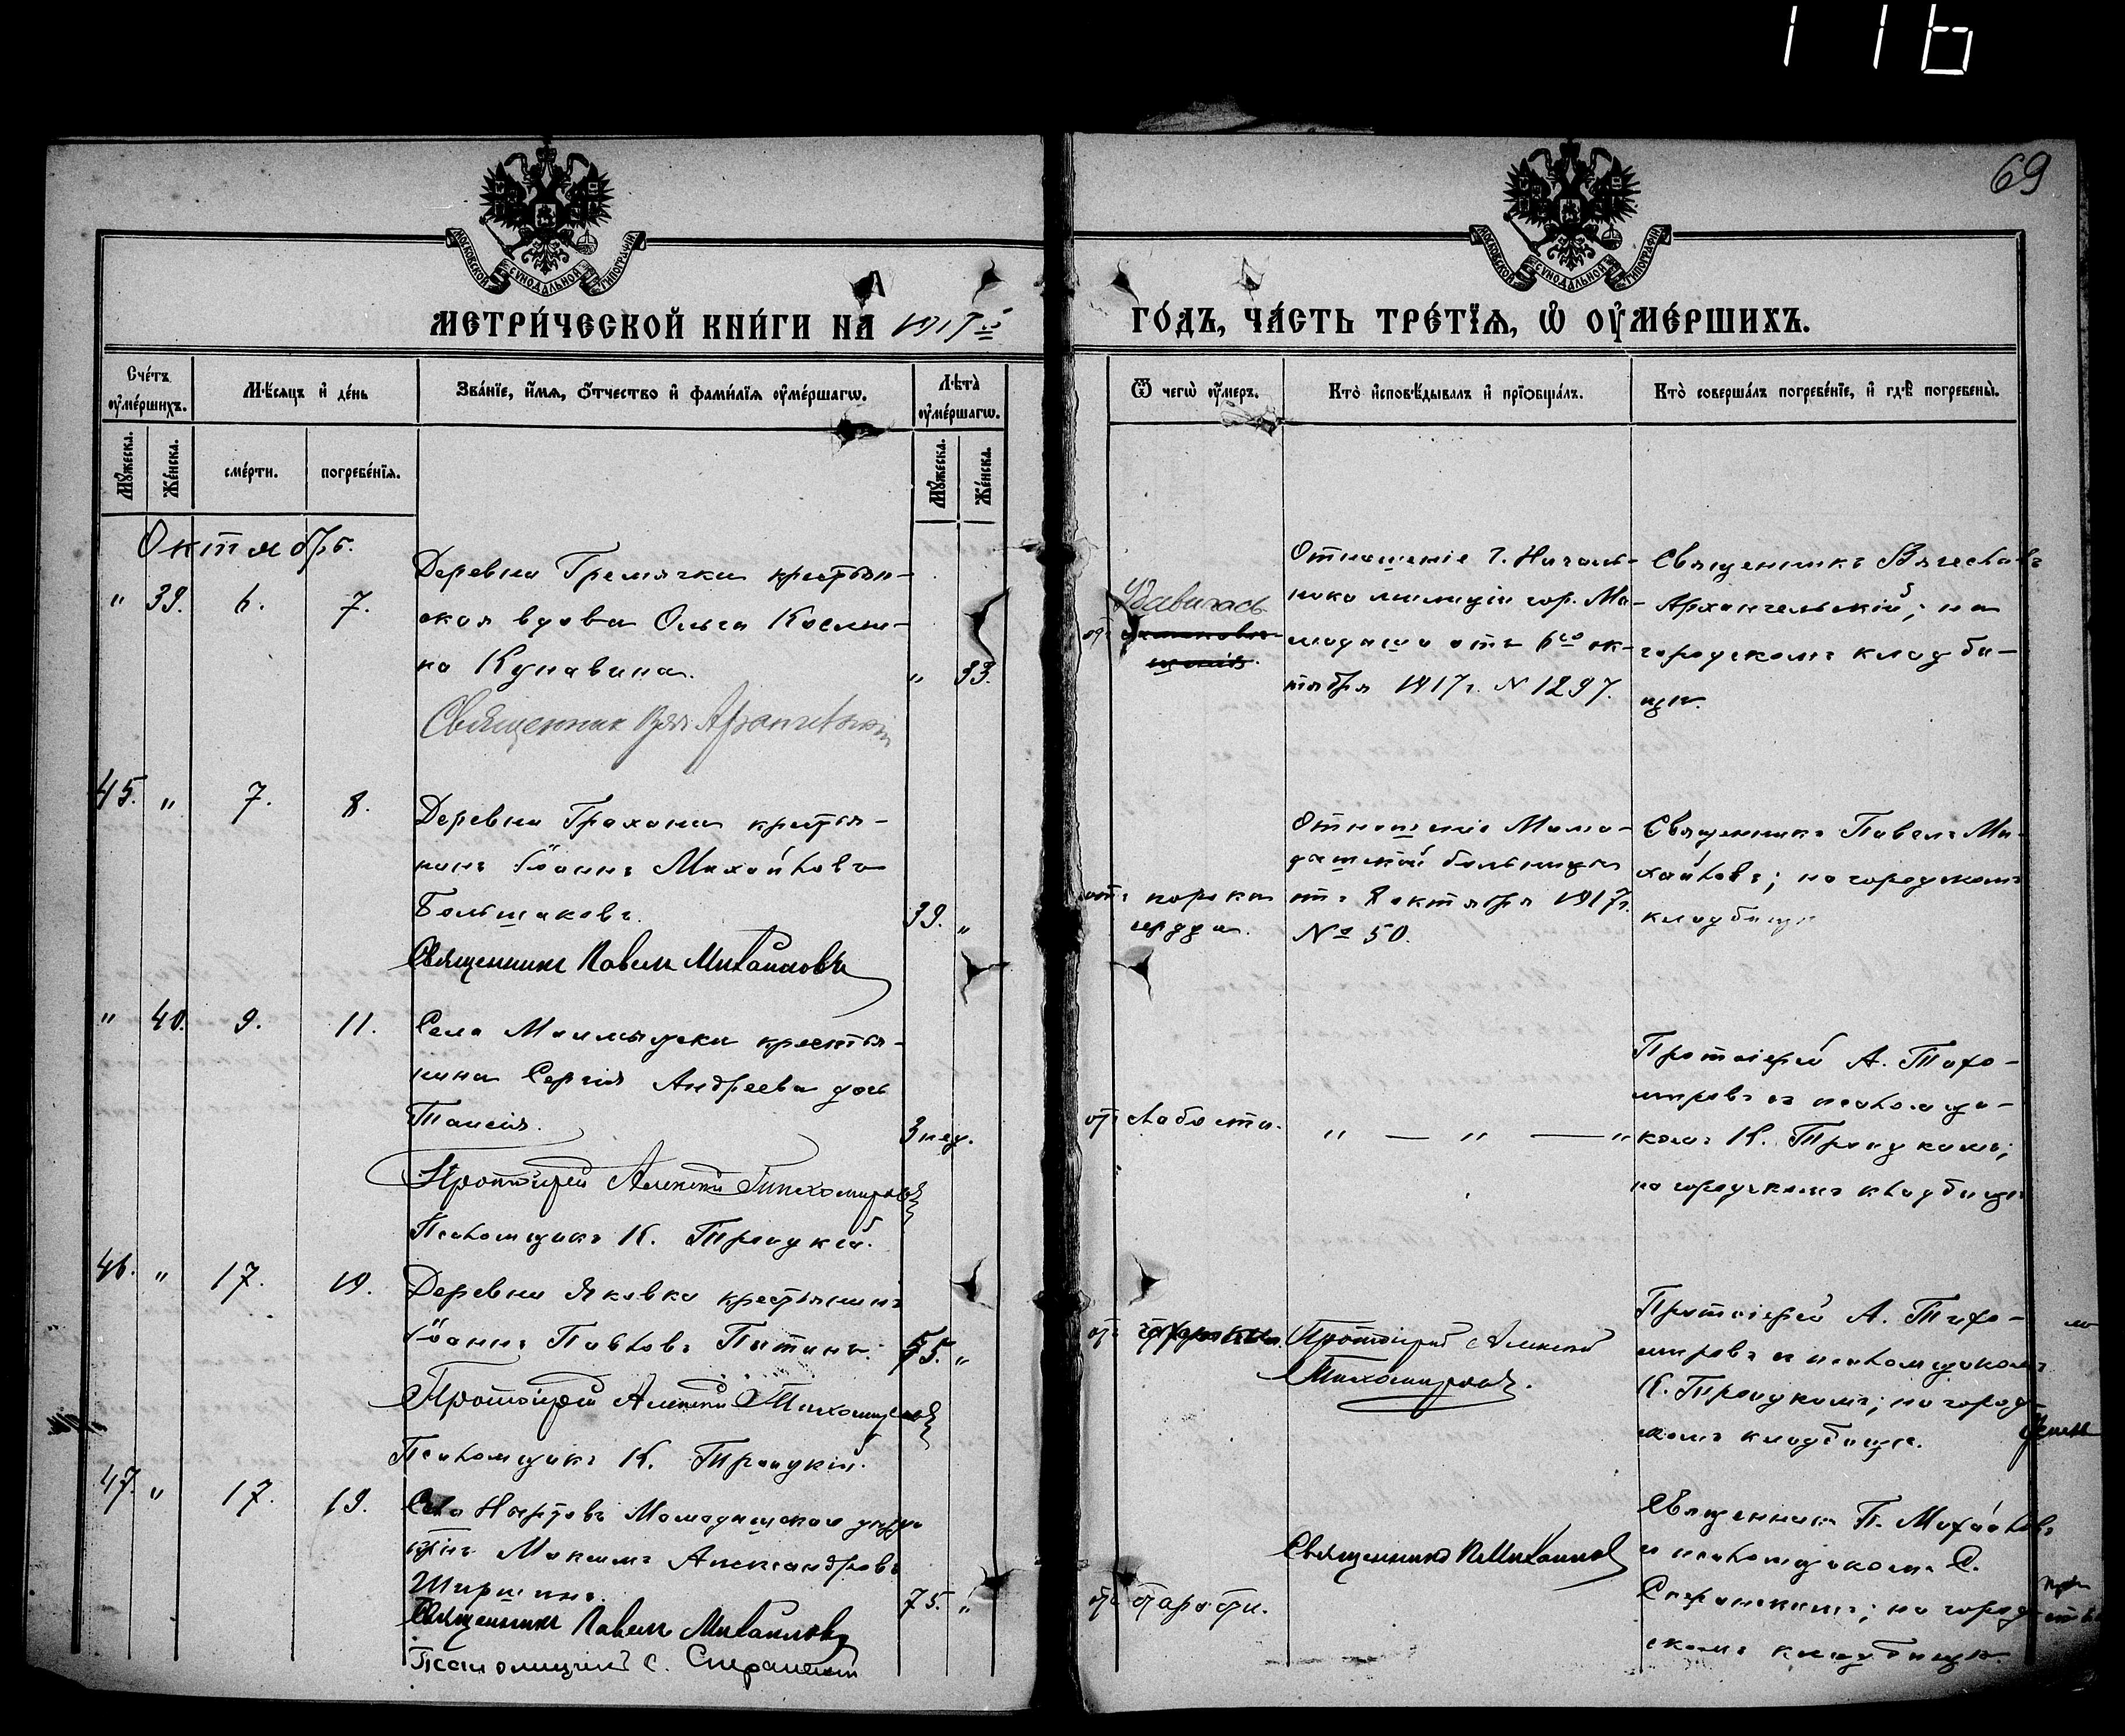 116
69
МОСКОВСКОЙ СУНОДАЛЬНОЙ ТИПОГРАФІИ
МОСКОВСКОЙ СУНОДАЛЬНОЙ ТИПОГРАФІИ
МЕТРИ́ЧЕСКОЙ КНИ́ГИ НА 1917й
ГО́ДЪ, ЧА́СТЬ ТРЕ́ТЇѦ, Ѡ҆ ОУ҆МЕ́РШИХЪ.
Сче́тъ оу҆ме́ршихъ.
Мѣ́сяцъ и҆ де́нь
Зва́нїе, и҆́мѧ, ѻ҆́тчество и҆ фами́лїѧ оу҆ме́ршагѡ.
Лѣ́та̀ оу҆ме́ршагѡ.
Ѿ чегѡ̀ оу҆́меръ.
Кто̀ и҆сповѣ́дывалъ и҆ прїѡбща́лъ.
Кто̀ соверша́лъ погребе́нїе, и҆ гдѣ̀ погребены̀.
Мꙋ́жеска.
Же́нска.
сме́рти.
погребе́нїѧ.
Мꙋ́жеска.
Же́нска.
Октябрь.
" 39. 6. 7.
Деревни Гремячки крестьян-
ская вдова Ольга Космина
Кунавина.
" 33.
Священник Вяч. Архангельский
Удавилась
от
Отношеніе г. Началь-
ника милиціи гор. Ма-
мадыша отъ 6го ок-
тября 1917 г. N 1297.
Священникъ Вячеславъ
Архангельскій; на
городскомъ кладби-
щѣ.
45. " 7. 8.
Деревни Грахани крестья-
нинъ Іоаннъ Михайловъ
Большаковъ.
39. "
Священникъ Павелъ Михайловъ
отъ порока
сердца.
Отношеніе Мама-
дышской больницы
отъ 8 октября 1917 г.
№ 50.
Священникъ Павелъ Ми-
хайловъ; на городскомъ
кладбищѣ
" 40. 9. 11.
Села крестья-
нина Сергія Андреева дочь
Таисія.
3 нед.
Протоіерей Алексій Тихомировъ
Псаломщикъ К. Троицкій.
отъ слабости.
" — " — "
Протоіерей А. Тихо-
мировъ съ псаломщи-
комъ К. Троицкимъ;
на городскомъ кладбищѣ
46. " 17. 19.
Деревни Яковка крестьянинъ
Іоаннъ Павловъ Пятинъ.
55. "
Протоіерей Алексій Тихомировъ
Псаломщикъ К. Троицкій.
отъ
Протоіерей Алексій
Тихомировъ.
Протоіерей А. Тихо-
мировъ съ псаломщикомъ
К. Троицкимъ; на город-
скомъ кладбищѣ.
47. " 17. 19.
Села Нырты Мамадышскаго уезда
кр-нъ Максимъ Александровъ
Ширшинъ.
75. "
Священникъ Павелъ Михайловъ
Псаломщикъ С. Сафранскій
отъ старости.
Священникъ П. Михайловъ
Священникъ П. Михайловъ
съ псаломщикомъ С.
Сафранскимъ; на город-
скомъ кладбищѣ.